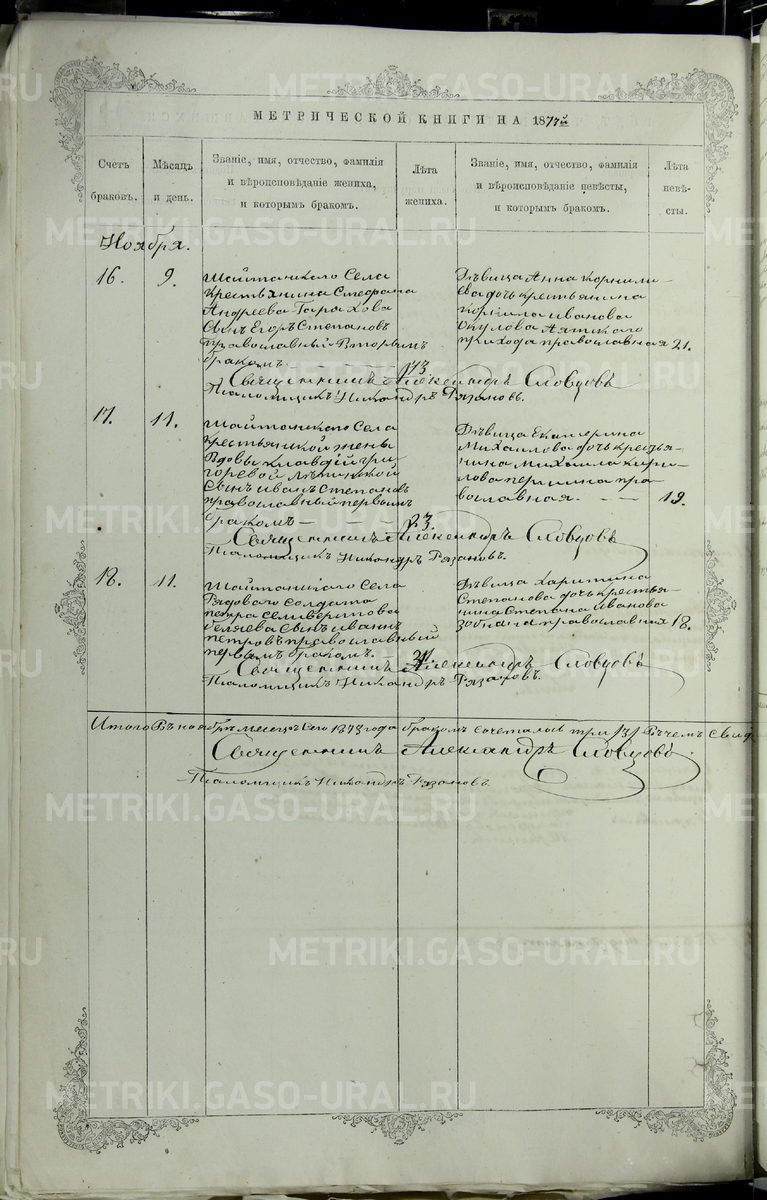 МЕТРИЧЕСКОЙ КНИГИ НА 187
Счетъ браковъ.
Мѣсяцъ и день.
Званіе, имя, отчество, фамилія и вѣроисповѣданіе жениха, и которымъ бракомъ.
Лѣта жениха.
Званіе, имя, отчество, фамилія и вѣроисповѣданіе невѣсты, и которымъ бракомъ.
Лѣта невѣсты.
Ноября.
16. 9.
Шайтанскаго Села
Крестьянина Стефана
Андреева
Сынъ Егоръ Степановъ
православный Вторымъ
бракомъ
Дѣвица Анна Корнили-
ева дочь крестьянина
Корнила Иванова
Окулова Аятскаго
прихода православная 21.
Священникъ Александръ Словцовъ
Псаломщикъ Никандръ Рязановъ.
17. 11.
Шайтанскаго Села
крестьянской жены
Вдовы Клавдіи Гри-
горевой
Сынъ Иванъ Степановъ
православный первымъ
бракомъ 23.
Дѣвица Екатерина
Михаилова дочь крестья-
нина Михаила Кири-
лова пра-
вославная. 19.
Священникъ Александръ Словцовъ
Псаломщикъ Никандръ Рязановъ.
18. 11.
Шайтанскаго Села
Рядоваго Солдата
Петра Селиверстова
Беляева Сынъ Иванъ
Петровъ православный
первымъ бракомъ.
Дѣвица Харитина
Степанова дочь крестья-
нина Степана Иванова
православная 18.
Священникъ Александръ Словцовъ
Псаломщикъ Никандръ Рязановъ.
Итого Въ ноябрѣ месяцѣ Сего 1873 года бракомъ сочетались три /3/ Въ чемъ
Священникъ Александръ Словцовъ.
Псаломщикъ Никандръ Рязановъ.
METRIKI.GASO-URAL.RU